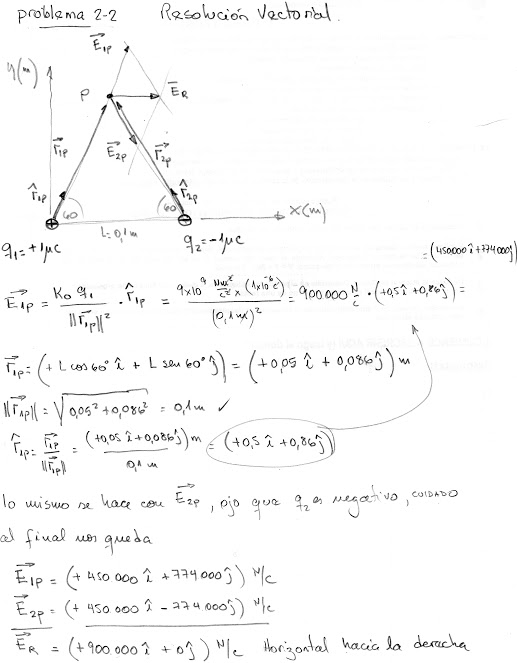 problema 2-2 Resolución Vectorial.
E⃗1p
y(m)
P
E⃗R
r⃗1p
E⃗2p
r⃗2p
r̂1p
r̂2p
60
60
x(m)
L=0,1m
q1=+1μc
q2=-1μc
=(450000 î+774000 ĵ)
E⃗1p = K0 q1 / ||r⃗1p||² · r̂1p = 9x10⁹ Nm²/c² x (1x10⁻⁶c) / (0,1m)² = 900000 N/c · (+0,5 î + 0,86 ĵ) =
r⃗1p = (+ L cos 60° î + L sen 60° ĵ) = (+0,05 î + 0,086 ĵ) m
||r⃗1p|| = √0,05² + 0,086² = 0,1m ✓
r̂1p = r⃗1p / ||r⃗1p|| = (+0,05 î + 0,086 ĵ) m / 0,1 m = (+0,5 î + 0,86 ĵ)
lo mismo se hace con E⃗2p, ojo que q2 es negativo, CUIDADO
al final nos queda
E⃗1p = (+ 450 000 î + 774 000 ĵ) N/c
E⃗2p = (+ 450 000 î - 774 000 ĵ) N/c
E⃗R = (+900 000 î + 0 ĵ) N/c Horizontal hacia la derecha